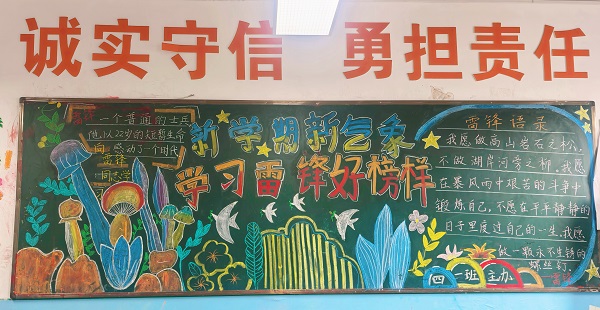 诚实守信 勇担责任
一个普通的士兵
他,以22岁的短暂生命
感动了一个时代
向雷锋
同志学
新学期新气象
学习雷锋好榜样
雷锋语录
我愿做高山岩石之松,
不做湖岸河旁之柳。我愿
在暴风雨中艰苦的斗争中
锻炼自己,不愿在平平静静的
日子里度过自己的一生。我愿
做一颗永不生锈的
螺丝钉。
雷锋
四一班主办